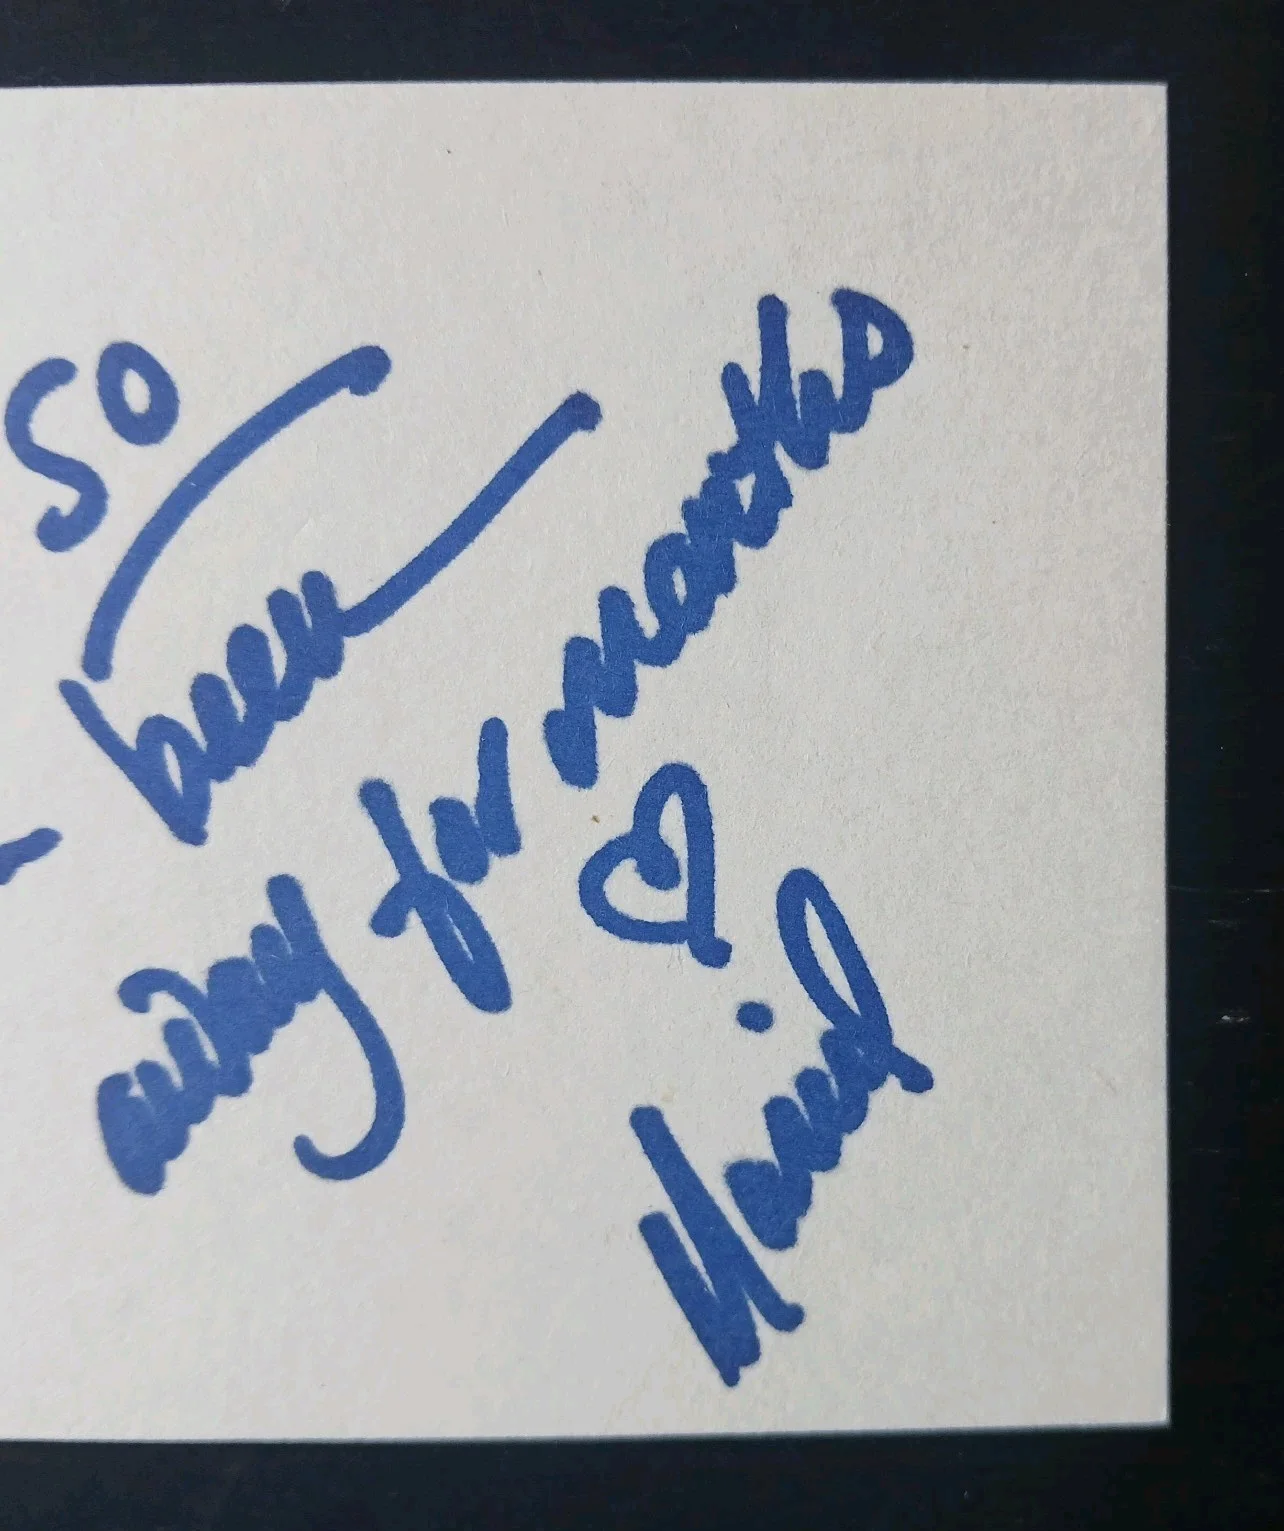 so
been
away for months
♡